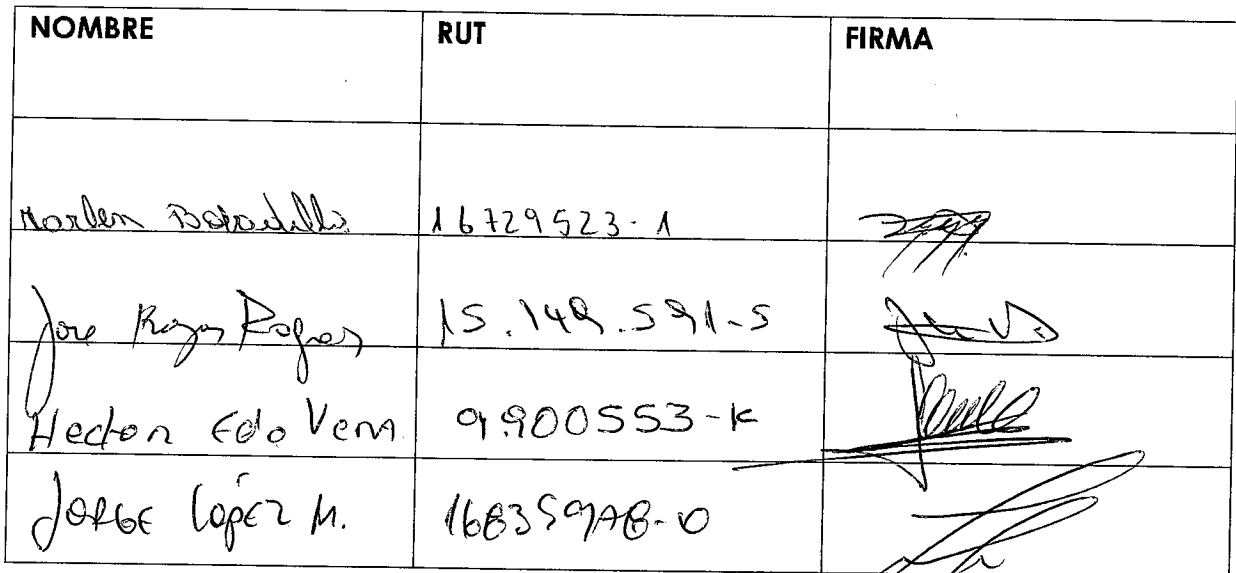 NOMBRE RUT FIRMA
Marlen Bobadilla 16729523-1
Jose Rojas Rojas 15.149.591-5
Hector Edo Vera 9.900553-K
JORGE LópEz M.